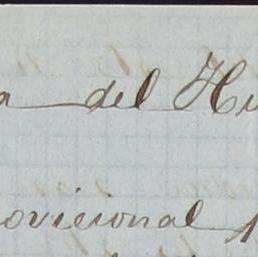 a del Hu
ovicional p